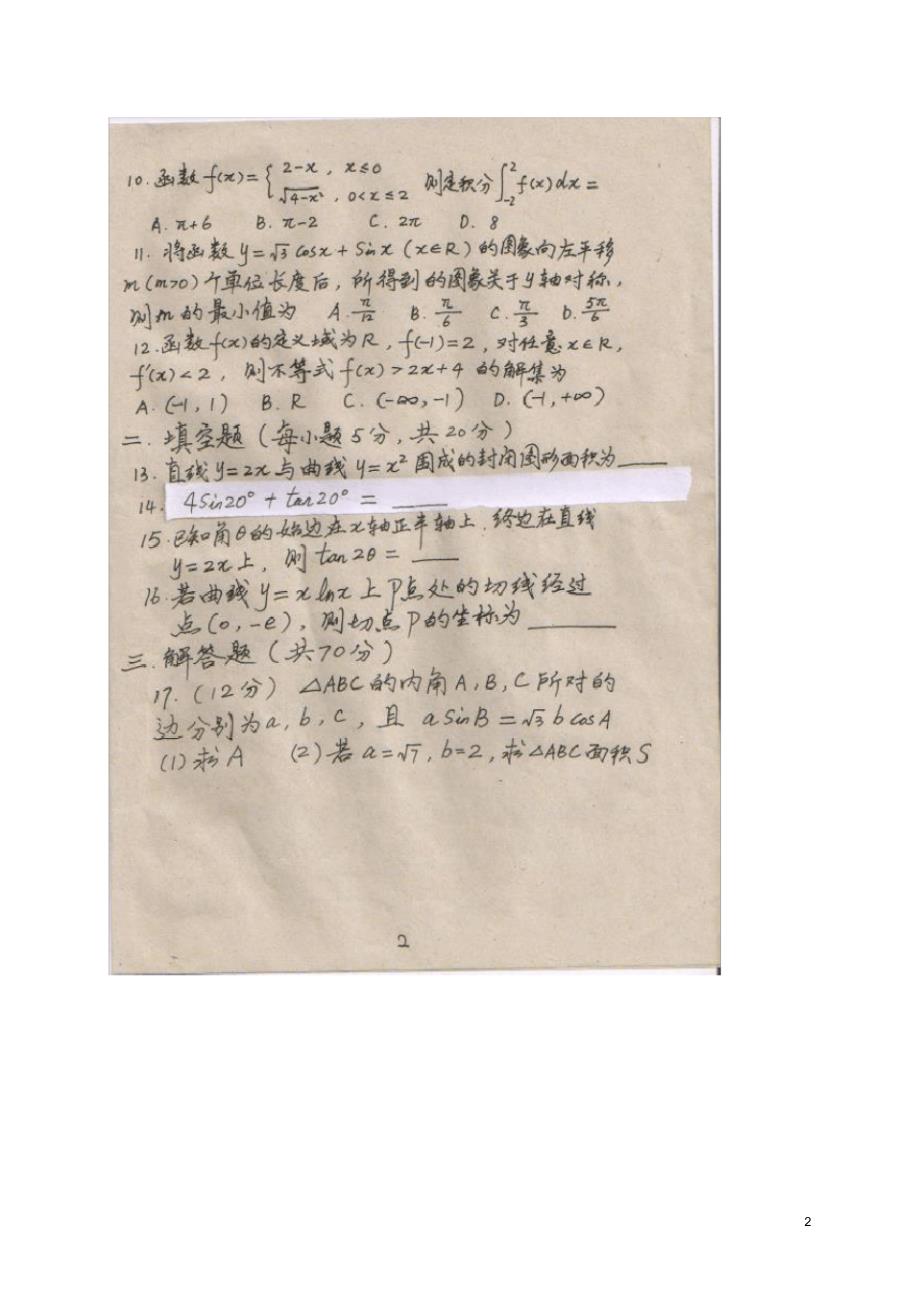 10. 函数 f(x)={ 2-x , x≤0 √4-x² , 0<x≤2 则定积分∫₋₂² f(x)dx =
A. π+6 B. π-2 C. 2π D. 8
11. 将函数 y=√3 cosx + Sinx (x∈R) 的图象向左平移
m(m>0)个单位长度后, 所得到的图象关于y轴对称,
则m的最小值为 A. π/12 B. π/6 C. π/3 D. 5π/6
12. 函数f(x)的定义域为R, f(-1)=2, 对任意x∈R,
f'(x)<2, 则不等式 f(x)>2x+4 的解集为
A. (-1, 1) B. R C. (-∞, -1) D. (-1, +∞)
二. 填空题 (每小题5分, 共20分)
13. 直线y=2x与曲线y=x²围成的封闭图形面积为____
14. 4Sin20° + tan20° = ____
15. 已知角θ的始边在x轴正半轴上, 终边在直线
y=2x上, 则 tan2θ = ____
16. 若曲线 y=xlnx 上P点处的切线经过
点(0, -e), 则切点P的坐标为 ____
三. 解答题 (共70分)
17. (12分) △ABC的内角A, B, C所对的
边分别为a, b, c, 且 aSinB=√3 bcosA
(1)求A (2)若a=√7, b=2, 求△ABC面积S
2
2